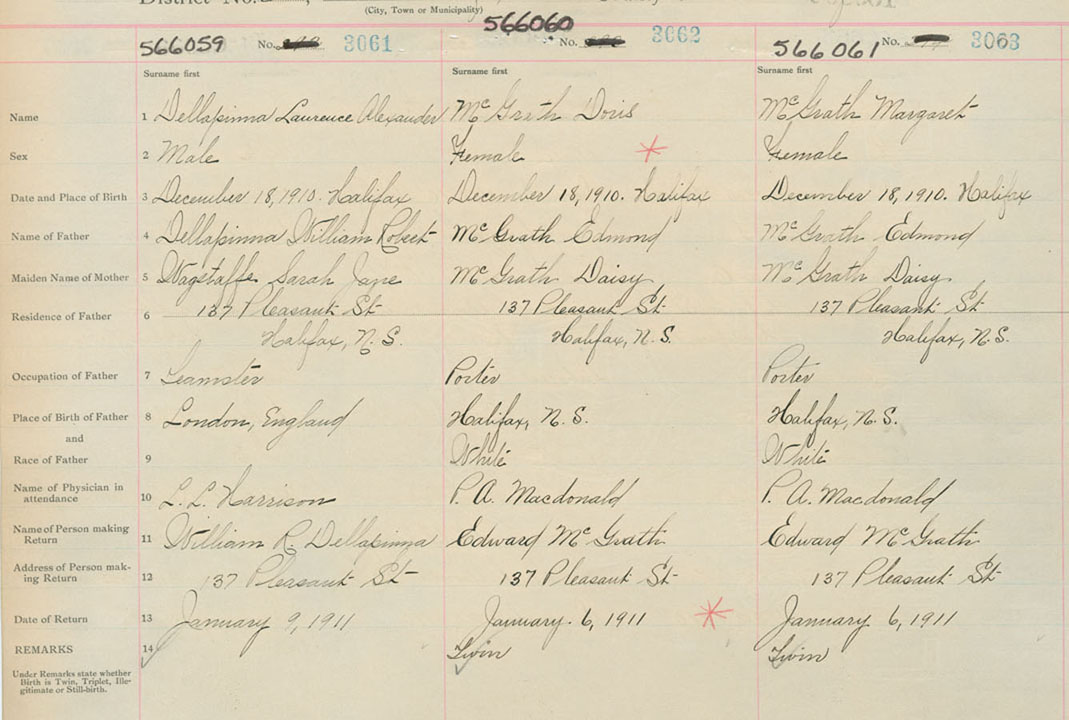 District No.
(City, Town or Municipality)
566059 No. 3061 566060 No. 3062 566061 No. 3063
Surname first Surname first Surname first
Name 1 Dellapinna Laurence Alexander McGrath Doris McGrath Margaret
Sex 2 Male Female Female
Date and Place of Birth 3 December 18, 1910. Halifax December 18, 1910. Halifax December 18, 1910. Halifax
Name of Father 4 Dellapinna William Robert McGrath Edmond McGrath Edmond
Maiden Name of Mother 5 Wagstaffe Sarah Jane McGrath Daisy McGrath Daisy
Residence of Father 6 137 Pleasant St 137 Pleasant St 137 Pleasant St
Halifax, N.S. Halifax, N.S. Halifax, N.S.
Occupation of Father 7 Teamster Porter Porter
Place of Birth of Father 8 London, England Halifax, N.S. Halifax, N.S.
and
Race of Father 9 White White
Name of Physician in
attendance 10 L. L. Harrison P. A. Macdonald P. A. Macdonald
Name of Person making
Return 11 William R. Dellapinna Edward McGrath Edward McGrath
Address of Person mak-
ing Return 12 137 Pleasant St 137 Pleasant St 137 Pleasant St
Date of Return 13 January 9, 1911 January 6, 1911 January 6, 1911
REMARKS 14 Twin Twin
Under Remarks state whether
Birth is Twin, Triplet, Ille-
gitimate or Still-birth.